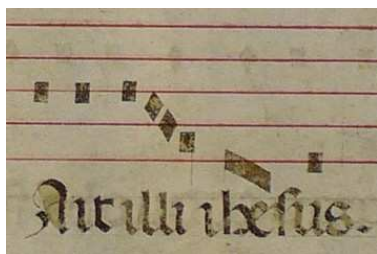 Ait illi ihesus.